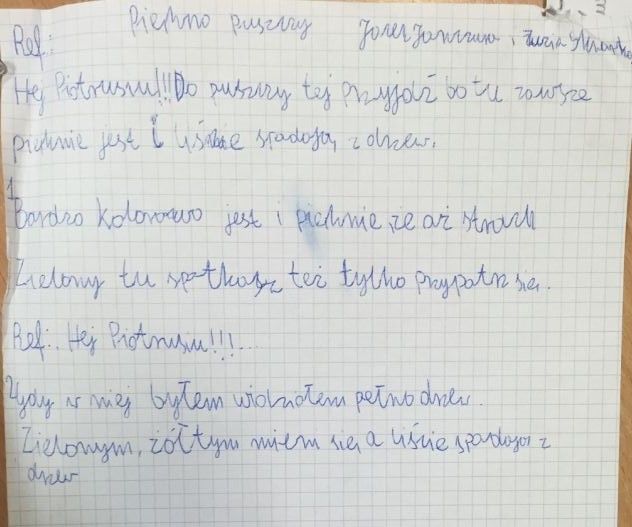 Piękno puszczy
Ref:
Hej Piotrusiu!!! Do puszczy tej przyjdź bo tu zawsze
pięknie jest i liście spadają z drzew.
1
Bardzo kolorowo jest i pięknie, że aż strach
Zielony tu spotkasz też tylko przypatrz się.
Ref:. Hej Piotrusiu!!!...
Gdy w niej byłem widziałem pełno drzew.
Zielonym, żółtym mieni się a liście spadają z
drzew